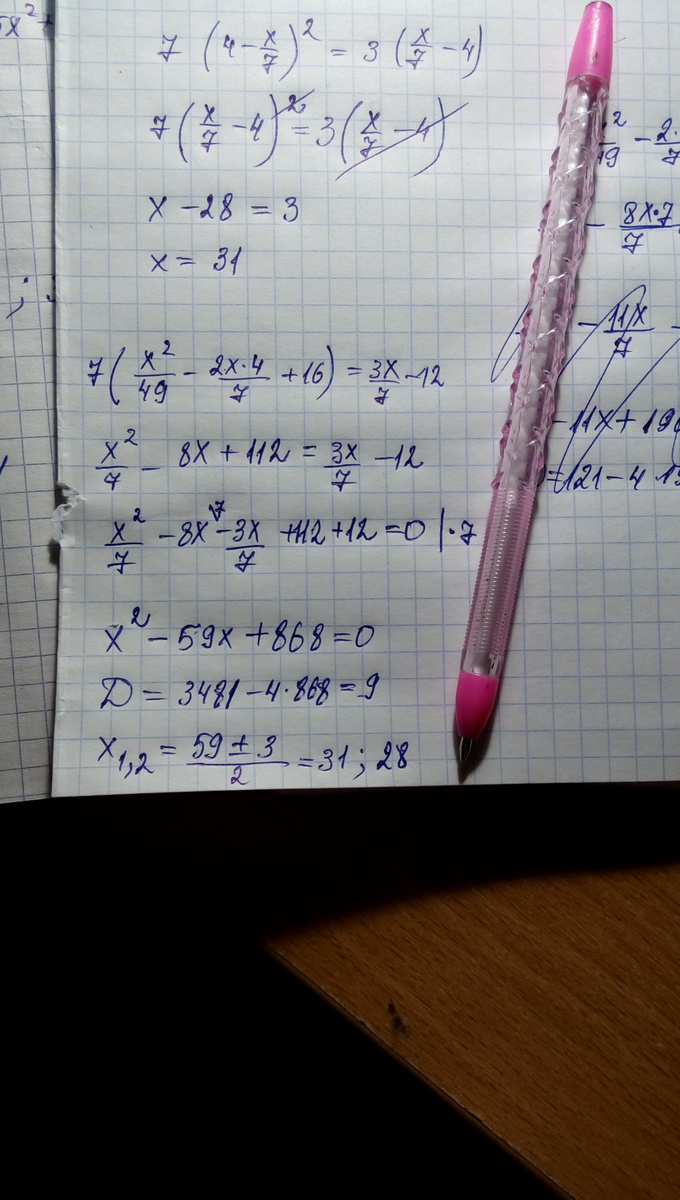 5x²
7 (4 - x/7)² = 3 (x/7 - 4)
7 (x/7 - 4)² = 3 (x/7 - 4)
x - 28 = 3
x = 31
7 (x²/49 - 2x·4/7 + 16) = 3x/7 - 12
x²/7 - 8x + 112 = 3x/7 - 12
x²/7 - 8x - 3x/7 + 112 + 12 = 0 | · 7
x² - 59x + 868 = 0
D = 3481 - 4·868 = 9
x₁,₂ = (59 ± 3)/2 = 31 ; 28
- 8x·7/7
- 11x/7
- 11x + 19
= 121 - 4 ·